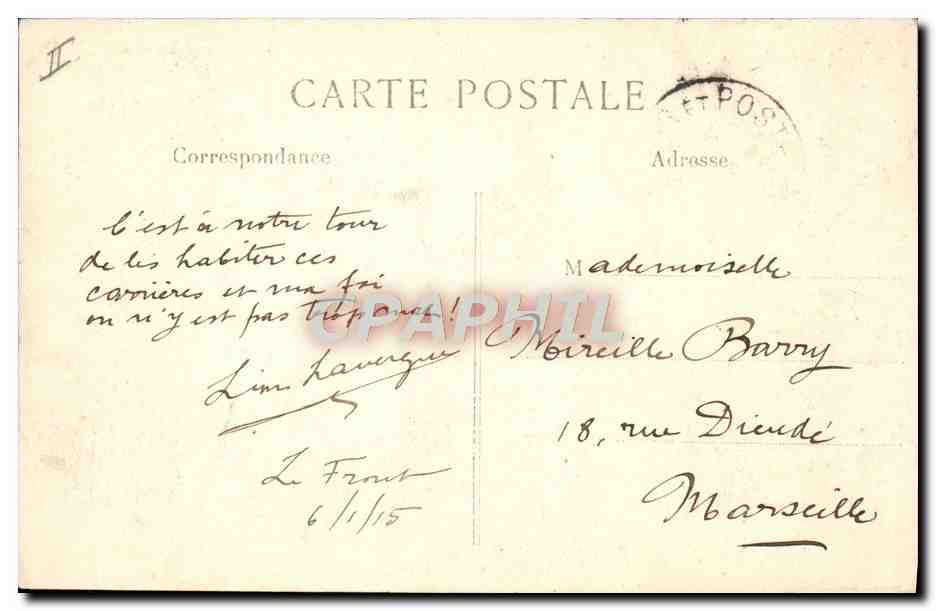 II
CARTE POSTALE
ET POST
Correspondance
Adresse
C'est à notre tour
de les habiter ces
carrières et ma foi
on n'y est pas trop mal !
Lavergne
Le Front
6/1/15
Mademoiselle
Mireille Barry
18, rue Dieudé
Marseille
CPAPHIL